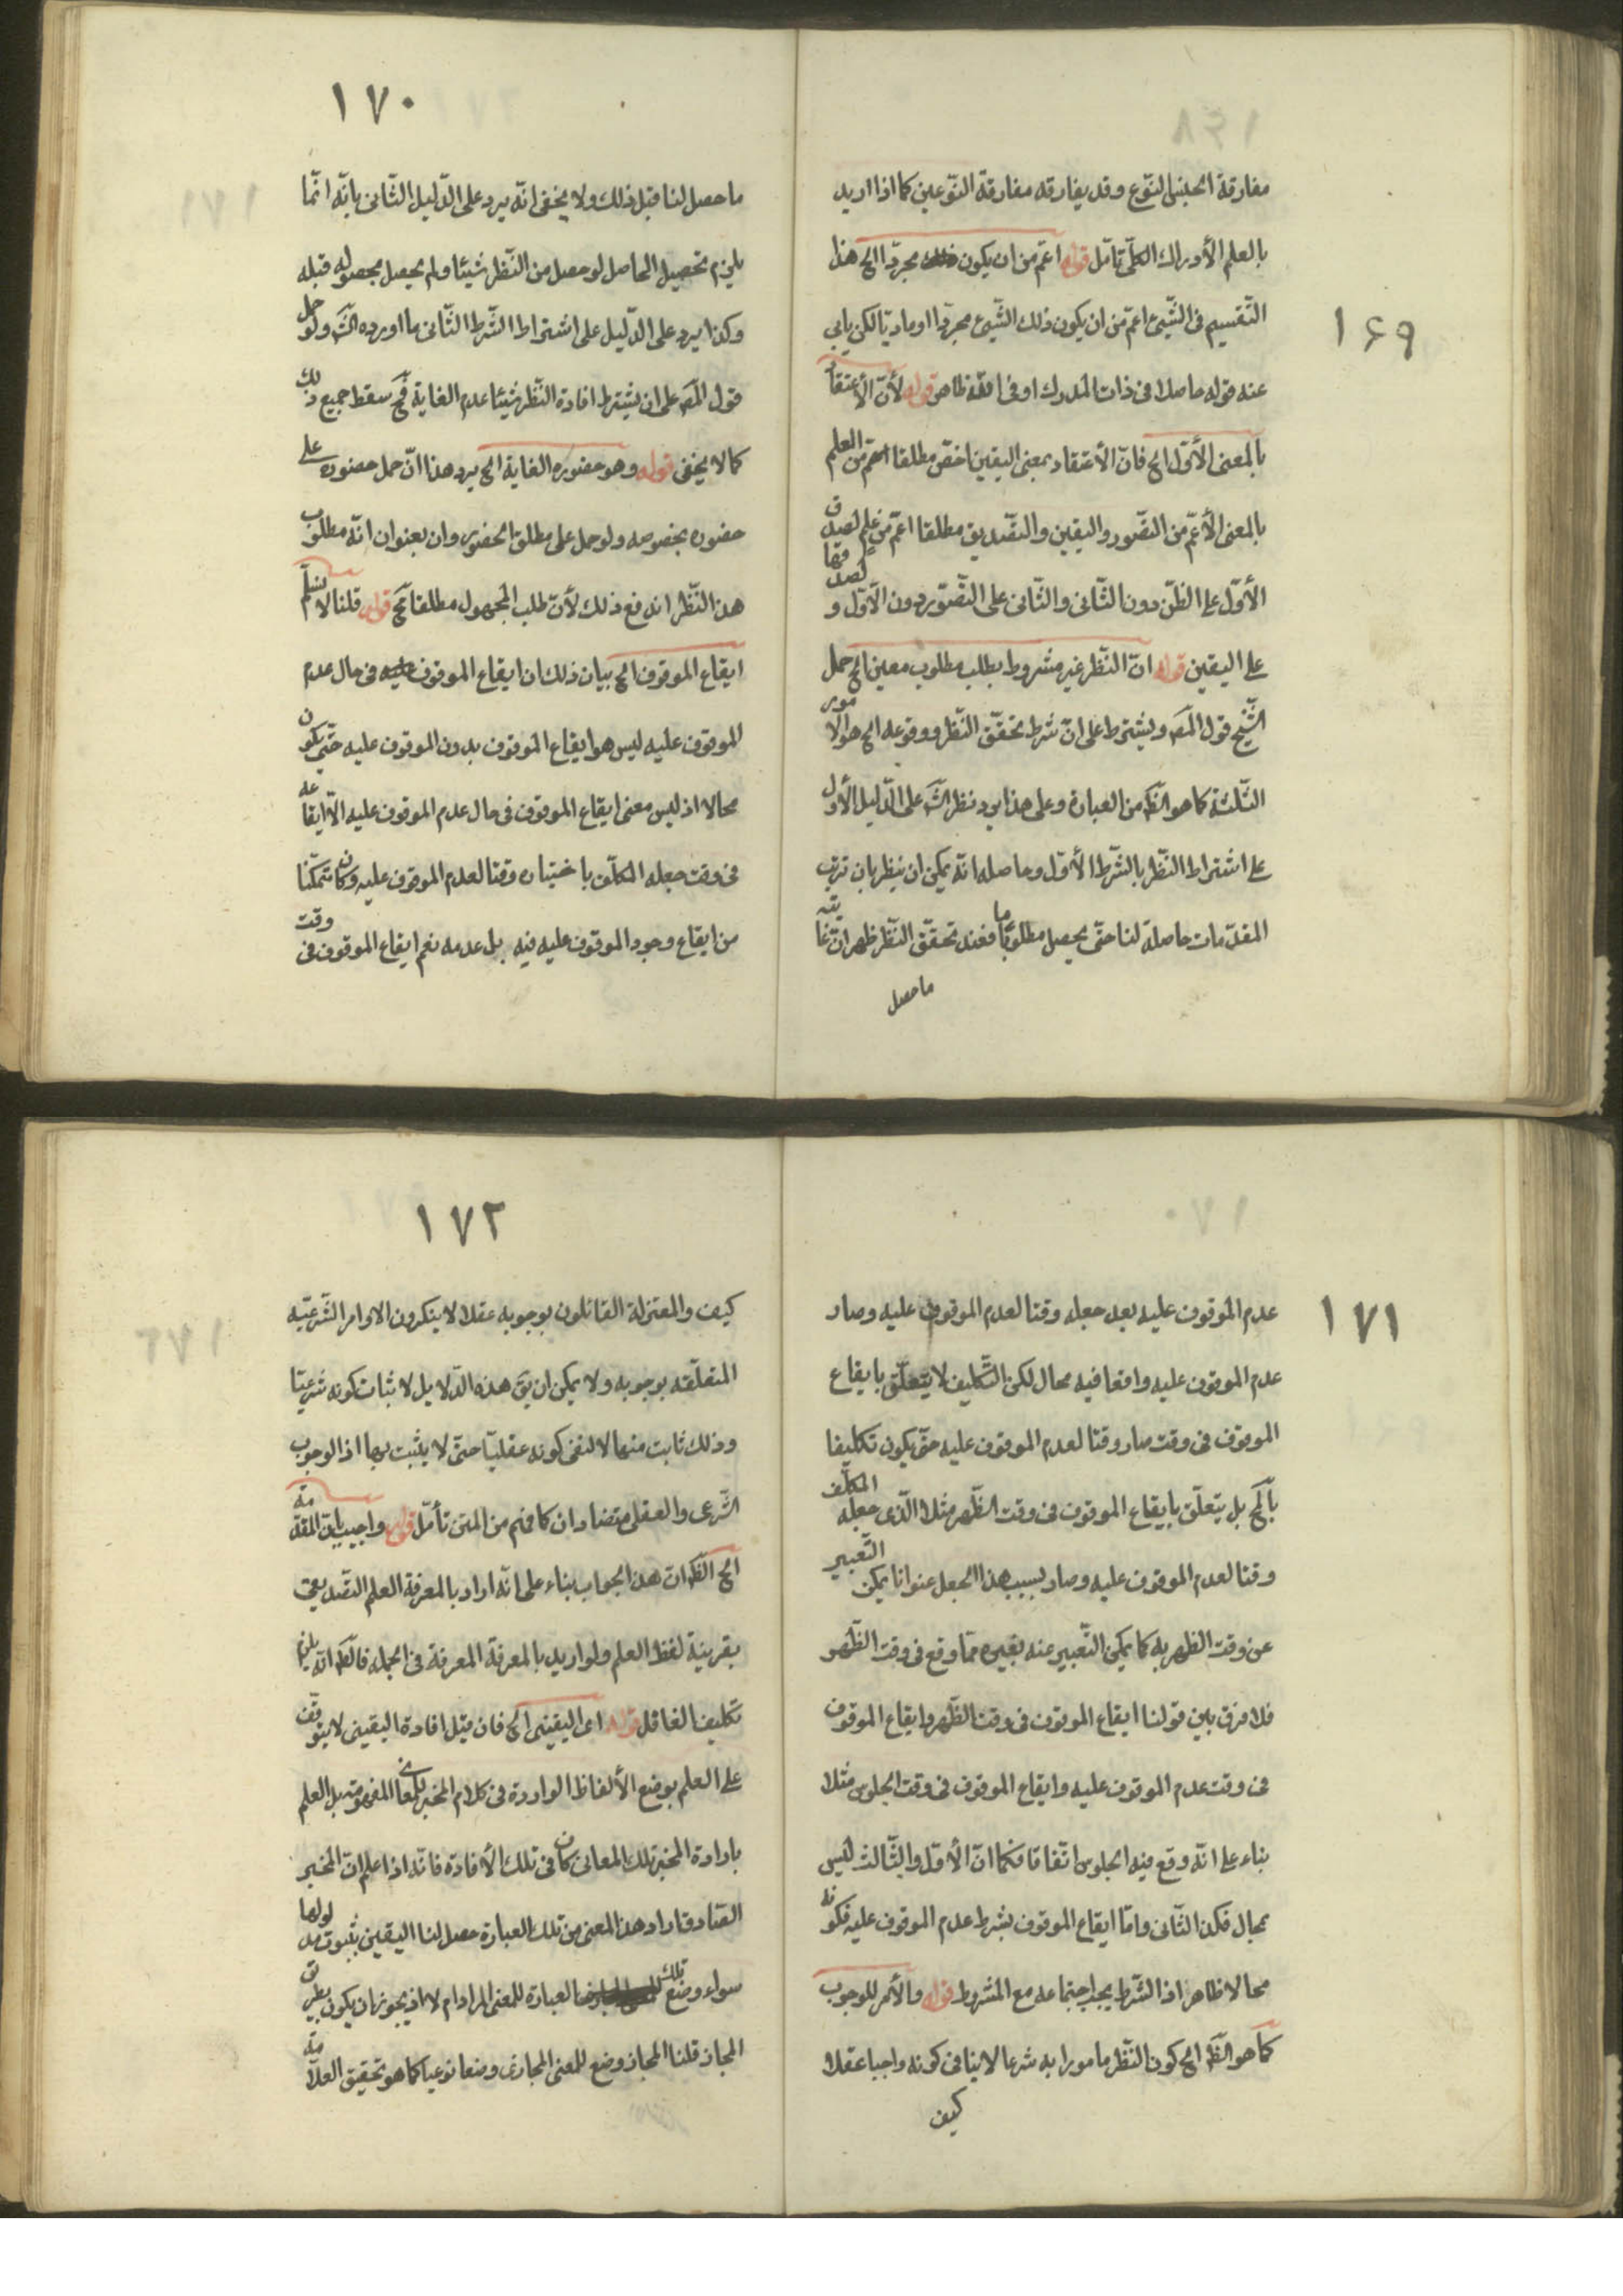 ١٦٩
مفارقة الجنس النوع وقد يفارقه مفارقة النوعين كما اذا اريد
بالعلم الأدراك الكلّى تأمّل قوله اعمّ من ان يكون مجرّدا الخ هذا
التّقسيم فى الشّيئ اعمّ من ان يكون ذلك الشّيئ مجرّدا او ماديّا لكن يابى
عنه قوله حاصلا فى ذات المدرك او فى ظاهر قوله لأنّ الأعتقاد
بالمعنى الأوّل الخ فانّ الأعتقاد بمعنى اليقين اخصّ مطلقا من العلم
بالمعنى الأعمّ من التصّور واليقين والتّصديق مطلقا اعمّ من علم لصدق
الأوّل على الظنّ دون الثّانى والثّانى على التّصّور دون الأوّل و لصدقهما
على اليقين قوله انّ النّظر غير مشروط بطلب مطلوب معين الخ حمل
الشّيخ قول المصّ ويشترط على انّ شرط تحقّق النّظر ووقوعه الخ هو الأمور
الثّلثة كما هو الظّ من العبارة وعلى هذا يرد نظر الشّ على الدّليل الأول
على اشتراط النّظر بالشّرط الأوّل وحاصله انّه يمكن ان ينظر بان ترتب
المقدّمات حاصلة لنا حتّى يحصل مطلوب ما فعند تحقّق النّظر ظهر انّ غايته
ما حصل
١٧٠
ما حصل لنا قبل ذلك ولا يخفى انّه يرد على الدّليل الثّانى بانّه انّما
يلزم تحصيل الحاصل لو حصل من النّظر شيئا ولم يحصل بحصوله قبله
وكذا يرد على الدّليل على اشتراط الشّرط الثّانى ما اورده الشّ ولو حمل
قول المصّ على ان يشترط افادة النّظر شيئا عدم الغاية فح سقط جميع ذلك
كما لا يخفى قوله وهو حضوره الغاية الخ يرد هذا انّ حمل حضوره على
حضوره بخصوصه ولو حمل على مطلق الحضور وان بعنوان انّه مطلوب
هذا النّظر اندفع ذلك لأنّ طلب المجهول مطلقا مح قوله قلنا لا نسلّم
ايقاع الموقوف الخ بيان ذلك ان ايقاع الموقوف فى حال عدم
الموقوف عليه ليس هو ايقاع الموقوف بدون الموقوف عليه حتّى يكون
محالا اذ ليس معنى ايقاع الموقوف فى حال عدم الموقوف عليه الّا ايقاعه
فى وقت جعله المكلّف باختياره وقتا لعدم الموقوف عليه وكان متمكّنا
من ايقاع وجود الموقوف عليه فيه بل عدمه نعم ايقاع الموقوف فى وقت
١٧١
عدم الموقوف عليه بعد جعله وقتا لعدم الموقوف عليه وصار
عدم الموقوف عليه واقعا فيه محال لكن التّكليف لا يتعلّق بايقاع
الموقوف فى وقت صار وقتا لعدم الموقوف عليه حتّى يكون تكليفا
بالمح بل يتعلّق بايقاع الموقوف فى وقت الظّهر مثلا الّذى جعله المكلّف
وقتا لعدم الموقوف عليه وصار بسبب هذا الجعل عنوانا يمكن التّعبير
عن وقت الظهر به كما يمكن التّعبير عنه بغيره ممّا وقع فى وقت الظّهر
فلا فرق بين قولنا ايقاع الموقوف فى وقت الظّهر وايقاع الموقوف
فى وقت عدم الموقوف عليه وايقاع الموقوف فى وقت الجلوس مثلا
بناء على انّه وقع فيه الجلوس اتّفاقا فكما انّ الأوّل والثّالث ليس
بمحال فكذا الثّانى وامّا ايقاع الموقوف بشرط عدم الموقوف عليه فكونه
محالا ظاهر اذ الشّرط يجب اجتماعه مع المشروط قوله والأمر للوجوب
كما هو الظّ الخ كون النّظر مامورا به شرعا لا ينافى كونه واجبا عقلا
كيف
١٧٢
كيف والمعتزلة القائلون بوجوبه عقلا لا ينكرون الاوامر الشّرعيّه
المتعلّقه بوجوبه ولا يمكن ان يقّ هذه الدّلايل لاثبات كونه شرعيّا
وذلك ثابت منها لا لنفى كونه عقليّا حتّى لا يثبت بها اذ الوجوب
الشّرعى والعقلى متضادان كما فهم من المتن تأمّل قوله واجيب بانّ المقدّمة
الخ الظّ انّ هذا الجواب بناء على انّه اراد بالمعرفة العلم التّصديقى
بقرينة لفظ العلم ولو اريد بالمعرفة المعرفة فى الجمله فالظّ انّه يلزم
تكليف الغافل قوله اى اليقينى الخ فان قيل افادة اليقينى لا يتوقّف
على العلم بوضع الألفاظ الواردة فى كلام المخبر للمعانى المفهومة بل العلم
بارادة المخبر تلك المعانى كان فى تلك الأفادة فانّه اذا علم انّ المخبر
الصّادق اراد هذا المعنى من تلك العبارة حصل لنا اليقين بثبوت مدلولها
سواء وضع تلك العبارة للمعنى المراد ام لا اذ يجوز ان يكون بطريق
المجاز قلنا المجاز وضع للمعنى المجازى وضعا نوعيا كما هو تحقيق العلّامة